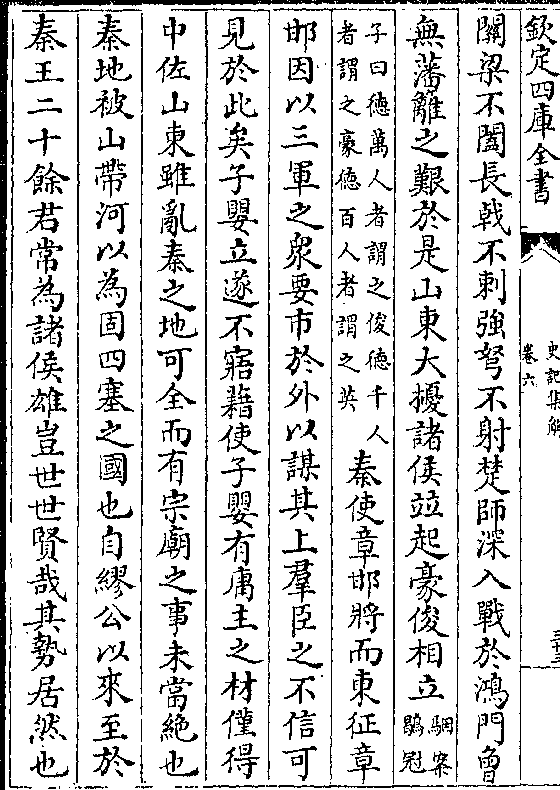 欽定四庫全書
史記集解
卷六
三十三
關梁不闔長戟不刺強弩不射楚師深入戰於鴻門曾
無藩離之艱於是山東大擾諸侯竝起豪俊相立
駰案
鶡冠
子曰徳萬人者謂之俊徳千人
者謂之豪徳百人者謂之英
秦使章邯將而東征章
邯因以三軍之衆要市於外以謀其上羣臣之不信可
見於此矣子嬰立遂不寤藉使子嬰有庸主之材僅得
中佐山東雖亂秦之地可全而有宗廟之事未當絶也
秦地被山帶河以為固四塞之國也自繆公以來至於
秦王二十餘君常為諸侯雄豈世世賢哉其勢居然也